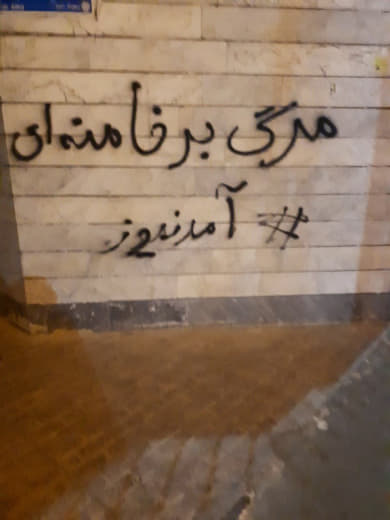 مرگ بر خامنه‌ای
# آمدنیوز